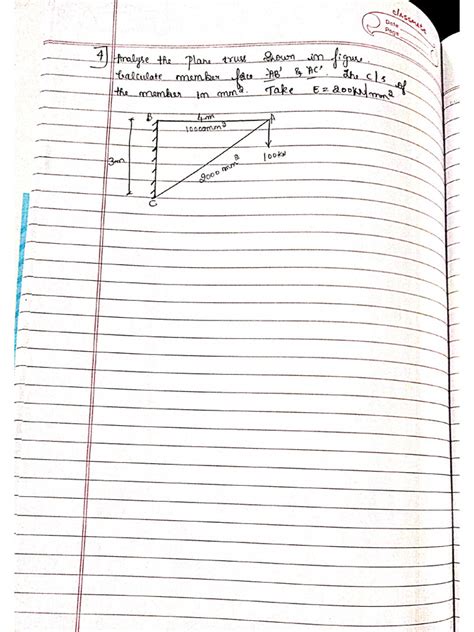 classmate
Date
Page
4] Analyse the plane truss shown in figure.
Calculate member force 'AB' & 'AC'. The c/s of
the member in mm². Take E = 200kN/mm²
B 4m A
1000mm²
3m
2000 mm²
100kN
C